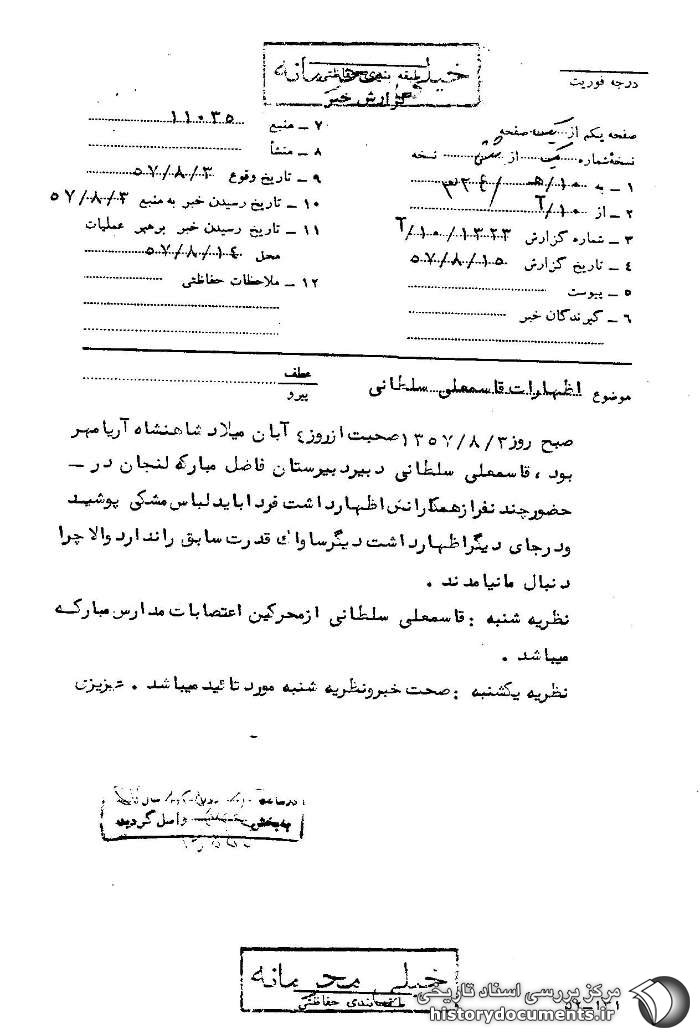 خیلی محرمانه
طبقه بندی حفاظتی
گزارش خبر
درجه فوریت
صفحه یکم از یک صفحه
نسخهٔ شماره یک از نسخه
۱ ـ به ۱۰/هـ
۲ ـ از ۱۰/آ
۳ ـ شماره گزارش ۱۳۲۳/۱۰/آ
۴ ـ تاریخ گزارش ۵۷/۸/۱۵
۵ ـ پیوست
۶ ـ گیرندگان خبر
۷ ـ منبع ۱۱۰۳۵
۸ ـ منشأ
۹ ـ تاریخ وقوع ۵۷/۸/۳
۱۰ ـ تاریخ رسیدن خبر به منبع ۵۷/۸/۳
۱۱ ـ تاریخ رسیدن خبر برهبر عملیات
محل ۵۷/۸/۱۴
۱۲ ـ ملاحظات حفاظتی
موضوع اظهارات قاسمعلی سلطانی
عطف
پیرو
صبح روز ۱۳۵۷/۸/۳ صحبت از روز ٤ آبان میلاد شاهنشاه آریامهر
بود ، قاسمعلی سلطانی دبیر دبیرستان فاضل مبارکه لنجان در ـ
حضور چند نفر از همکارانش اظهار داشت فردا باید لباس مشکی پوشید
و در جای دیگر اظهار داشت دیگر ساواک قدرت سابق را ندارد والا چرا
دنبال ما نیامدند .
نظریه شنبه : قاسمعلی سلطانی از محرکین اعتصابات مدارس مبارکه
میباشد .
نظریه یکشنبه : صحت خبر و نظریه شنبه مورد تائید میباشد . عزیزی
در ساعت
به بخش واصل گردید
خیلی محرمانه
طبقه بندی حفاظتی
مرکز بررسی اسناد تاریخی
historydocuments.ir